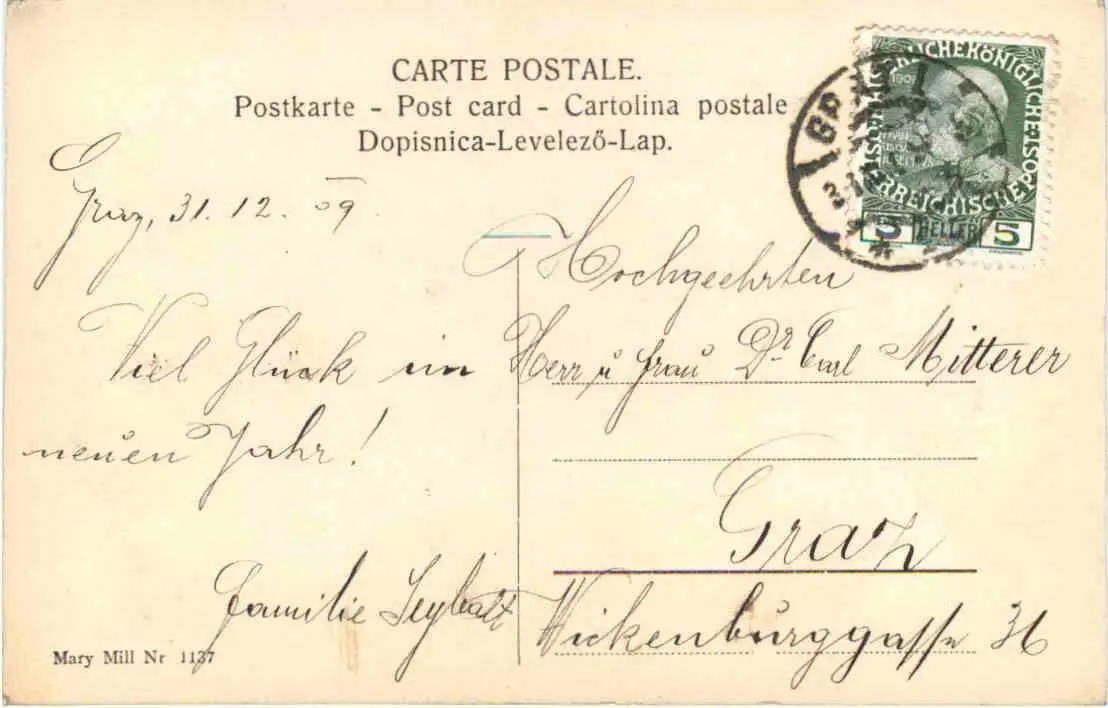 CARTE POSTALE.
Postkarte - Post card - Cartolina postale
Dopisnica-Levelező-Lap.
Graz, 31. 12. 09
Viel Glück im
neuen Jahr!
Familie Seybalt
Mary Mill Nr 1137
Hochgeehrten
Herr u Frau Dr Carl Mitterer
Graz
Wickenburggasse 36
GRAZ 1
5 HELLER 5